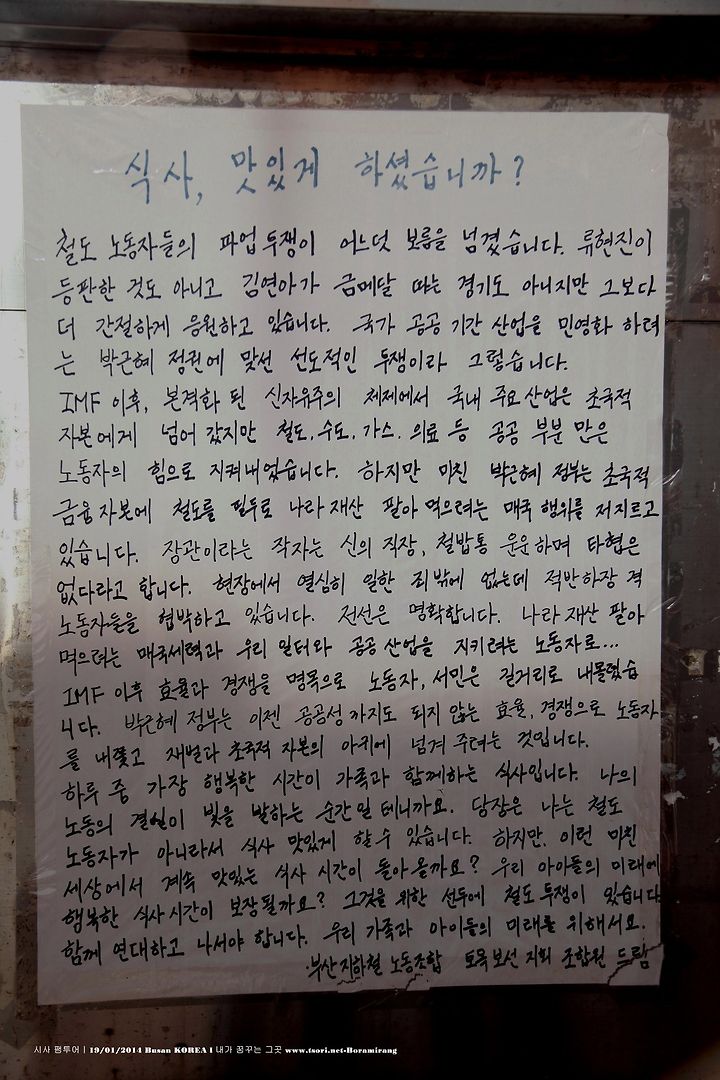 식사, 맛있게 하셨습니까?
철도 노동자들의 파업 투쟁이 어느덧 보름을 넘겼습니다. 류현진이
등판한 것도 아니고 김연아가 금메달 따는 경기도 아니지만 그보다
더 간절하게 응원하고 있습니다. 국가 공공 기간 산업을 민영화 하려
는 박근혜 정권에 맞선 선도적인 투쟁이라 그렇습니다.
IMF 이후, 본격화 된 신자유주의 체제에서 국내 주요 산업은 초국적
자본에게 넘어 갔지만 철도, 수도, 가스, 의료 등 공공 부분 만은
노동자의 힘으로 지켜내었습니다. 하지만 미친 박근혜 정부는 초국적
금융자본에 철도를 필두로 나라재산 팔아 먹으려는 매국 행위를 저지르고
있습니다. 장관이라는 작자는 신의 직장, 철밥통 운운하며 타협은
없다라고 합니다. 현장에서 열심히 일한 죄밖에 없는데 적반하장 격
노동자들을 협박하고 있습니다. 전선은 명확합니다. 나라 재산 팔아
먹으려는 매국세력과 우리 일터와 공공 산업을 지키려는 노동자로...
IMF 이후 효율과 경쟁을 명목으로 노동자, 서민은 길거리로 내몰렸습
니다. 박근혜 정부는 이젠 공공성 까지도 되지 않는 효율, 경쟁으로 노동자
를 내쫓고 재벌과 초국적 자본의 아귀에 넘겨 주려는 것입니다.
하루 중 가장 행복한 시간이 가족과 함께하는 식사입니다. 나의
노동의 결실이 빛을 발하는 순간일 테니까요. 당장은 나는 철도
노동자가 아니라서 식사 맛있게 할 수 있습니다. 하지만, 이런 미친
세상에서 계속 맛있는 식사 시간이 돌아 올까요? 우리 아이들의 미래에
행복한 식사시간이 보장될까요? 그것을 위한 선두에 철도 투쟁이 있습니다
함께 연대하고 나서야 합니다. 우리 가족과 아이들의 미래를 위해서요.
부산지하철 노동조합 토목보선 지회 조합원 드림
시사 팸투어 | 19/01/2014 Busan KOREA l 내가 꿈꾸는 그곳 www.tsori.net-Boramirang